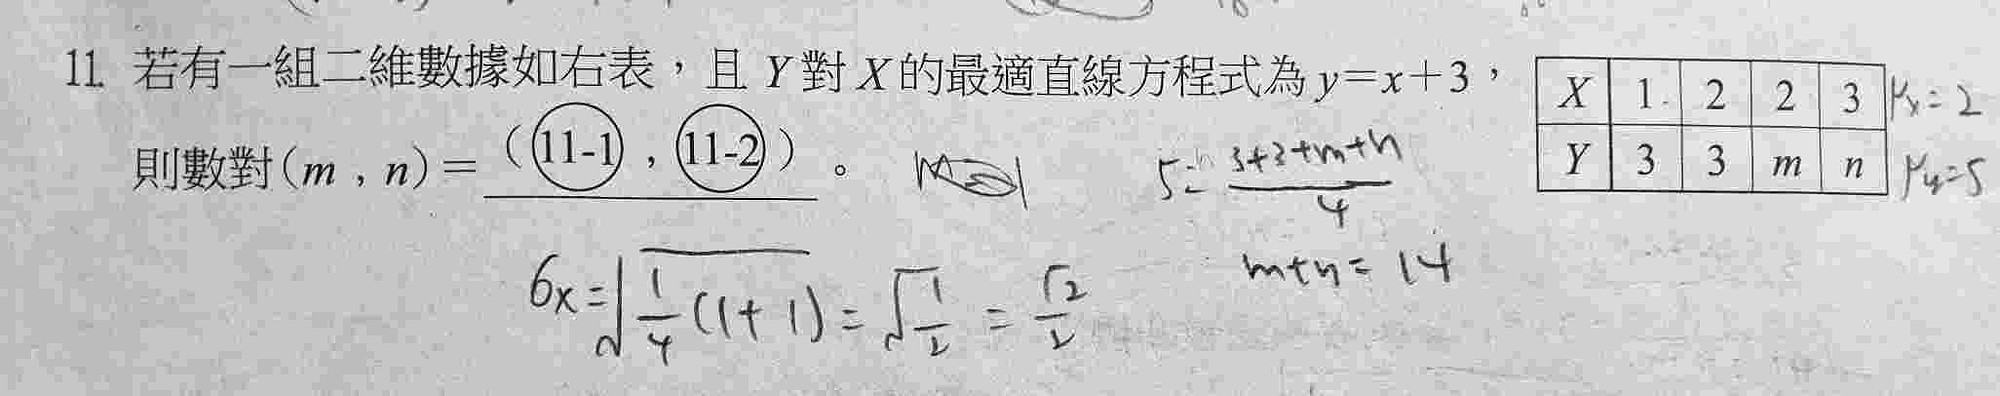 11. 若有一組二維數據如右表，且 Y 對 X 的最適直線方程式為 y=x+3，
則數對(m，n)=（11-1，11-2）。
X 1 2 2 3 μx=2
Y 3 3 m n μy=5
5=(3+3+m+n)/4
m+n=14
σx=√(1/4(1+1))=√(1/2)=√2/2